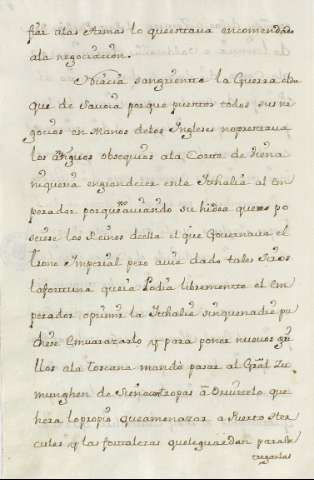 fiar alas Armas lo queestava encomendado
ala negociacion.
Hacia sangrienta la Guerra el Du
que de Saboia porque puestos todos sus ne
gocios en Manos delos Ingleses noprestava
los antiguos obsequios ala Corte de Viena
niqueria engrandecer enla Ithalia al Em
perador porque no aviendo su hidea que po
seiese los Reinos de ella el que Governava el
Cetro Imperial pero avia dado tales Saxos
lafortuna queia Podia libremente el Em
perador oprimir la Ithalia sinquenadie pu
diese Emvarazarlo y para poner nuevos gri
llos ala toscana mandó pasar al Gral Zu
munghen de Siena contropas à Orvitelo que
hera lopropio queamenazar a Puerto Her
cules y las fortalezas queleguardan para en
tregarlas